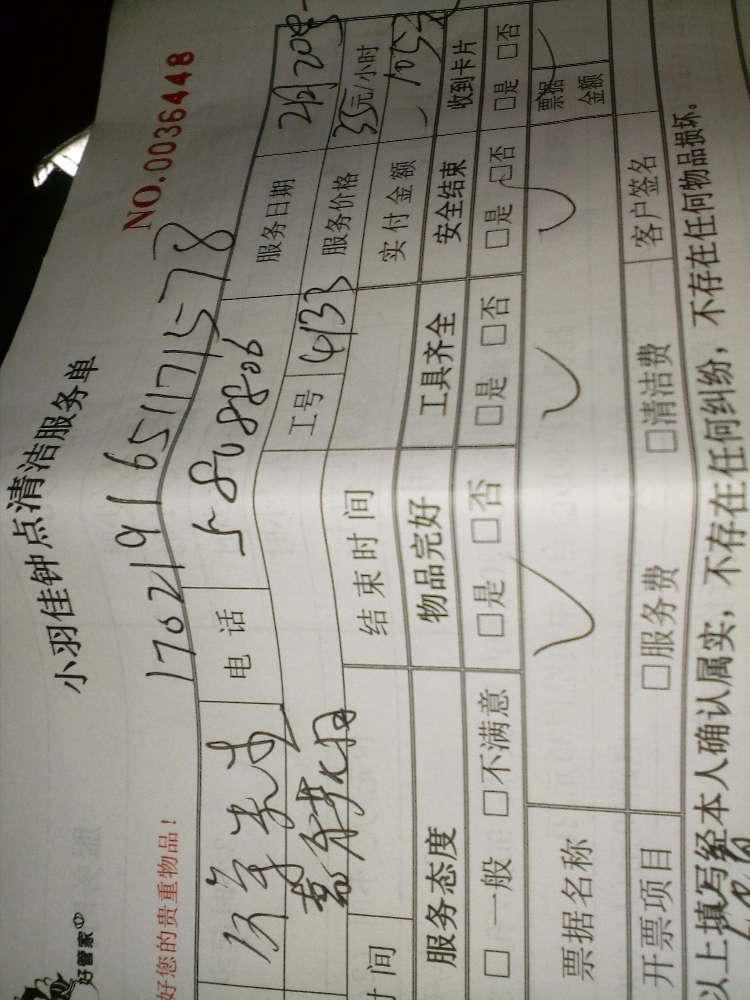 好管家
小羽佳钟点清洁服务单
NO.0036448
好您的贵重物品！
170219165117157８
电话 5808806 服务日期
工号 4133 服务价格 35元/小时
时间 结束时间 实付金额 105
服务态度 物品完好 工具齐全 安全结束 收到卡片
□一般 □不满意 □是 □否 □是 □否 □是 □否 □是 □否
票据名称 票据金额
开票项目 □服务费 □清洁费 客户签名
以上填写经本人确认属实，不存在任何纠纷，不存在任何物品损坏。